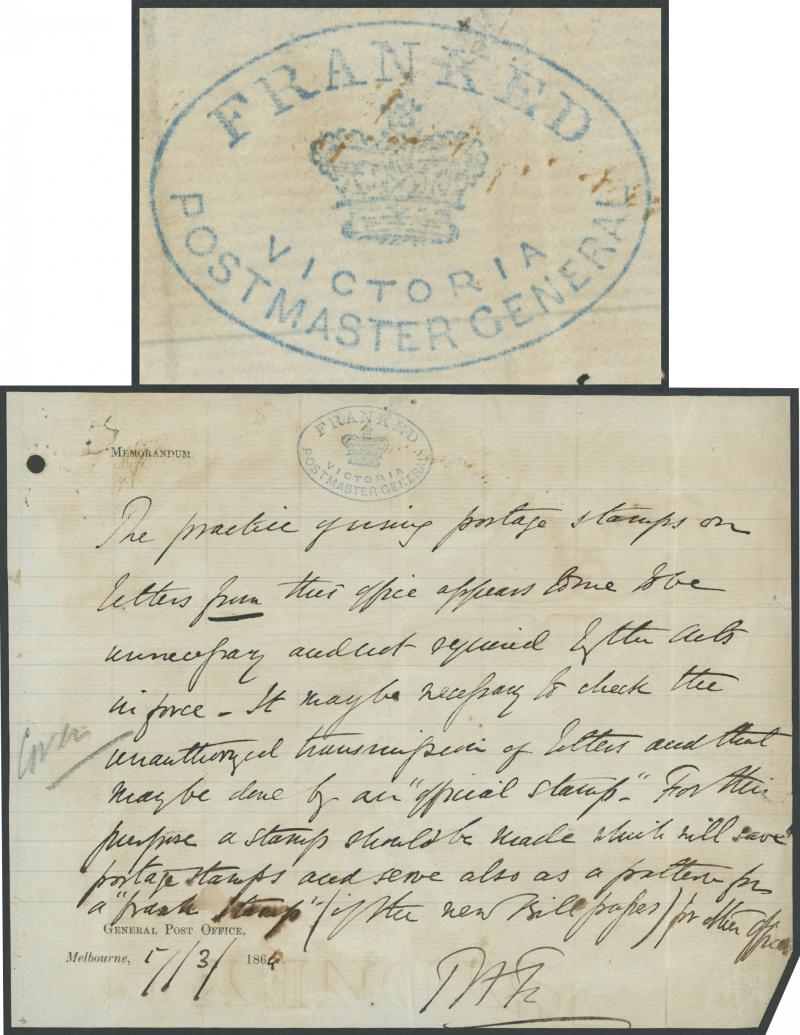 FRANKED
VICTORIA
POSTMASTER GENERAL
MEMORANDUM.
FRANKED
VICTORIA
POSTMASTER GENERAL
The practice of using postage stamps on
letters from this office appears to me to be
unnecessary and not required by the Acts
in force – It may be necessary to check the
Cover
unauthorized transmission of letters and that
may be done by an "official stamp". For this
purpose a stamp should be made which will save
postage stamps and serve also as a pattern for
a "frank stamp" (if the new Bill passes) for other offices
GENERAL POST OFFICE.
Melbourne, /3/ 1864.